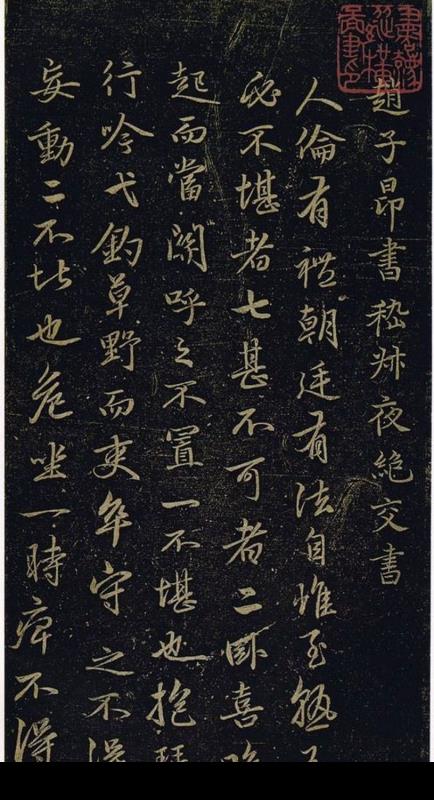 趙子昂書嵇叔夜絶交書
人倫有禮朝廷有法自惟至熟
必不堪者七甚不可者二卧喜晚
起而當関呼之不置一不堪也抱琴
行吟弋釣草野而吏卒守之不得
妄動二不堪也危坐一時痺不得